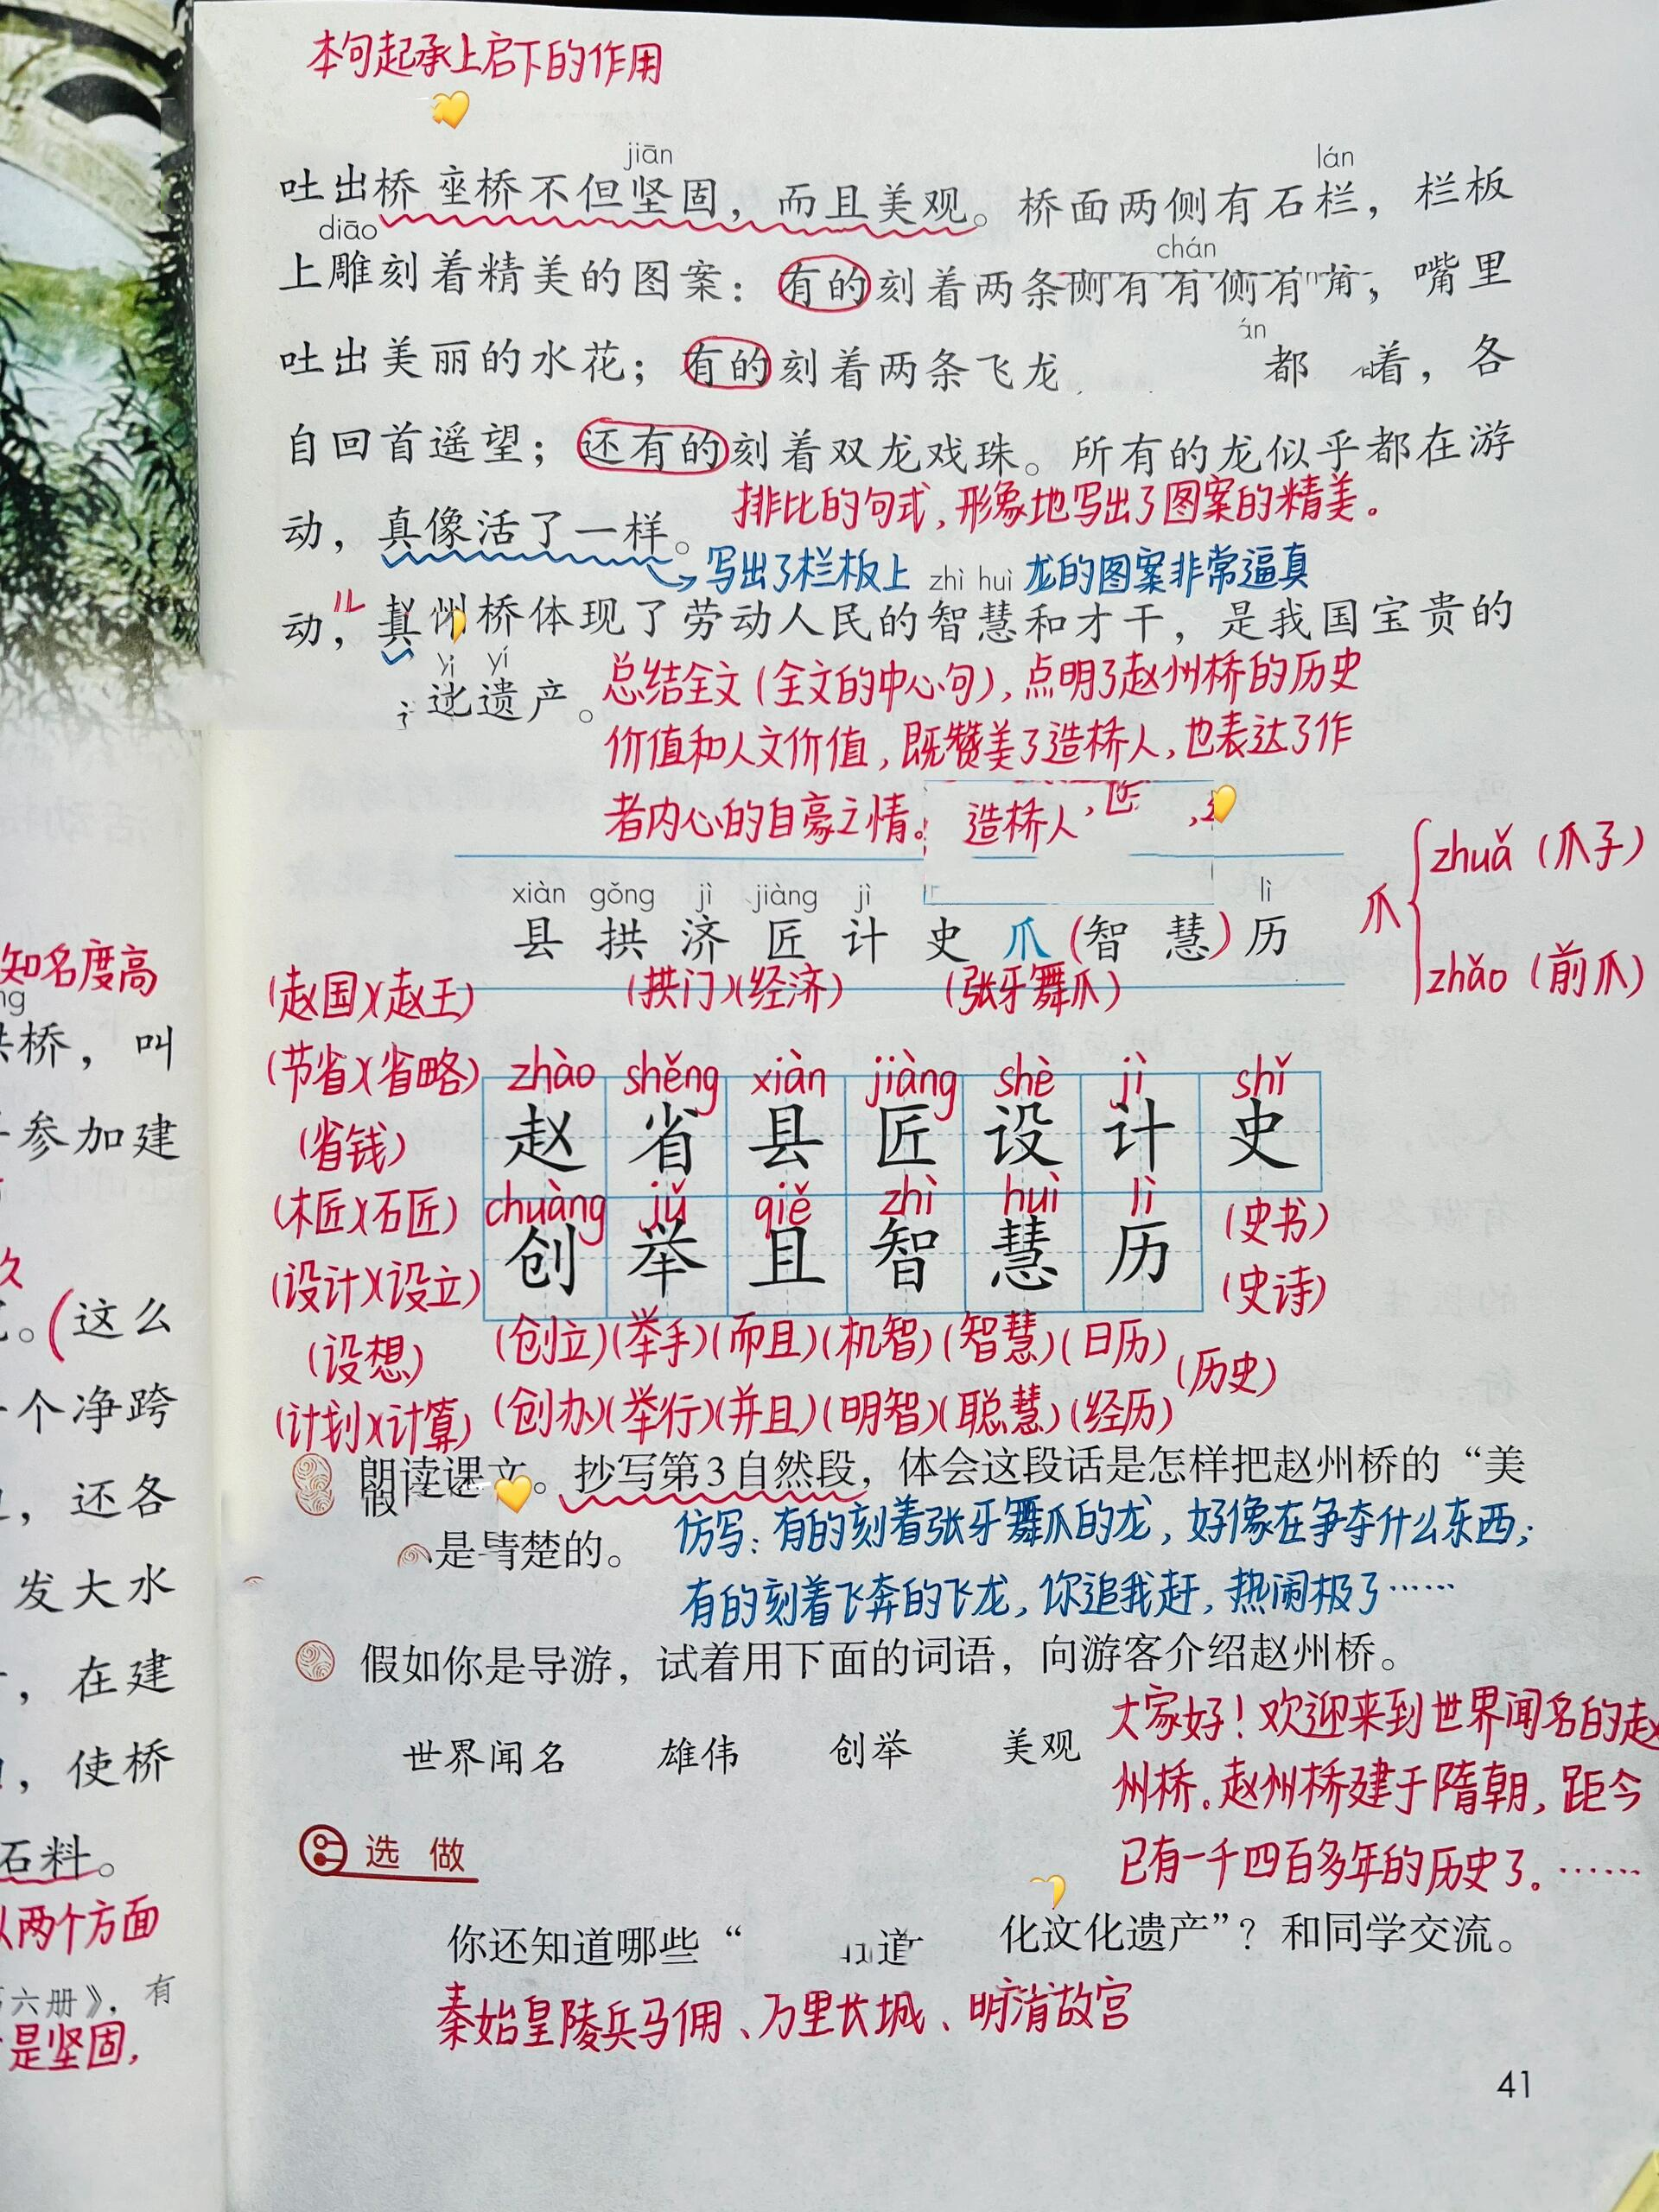 本句起承上启下的作用
jiān lán
吐出桥 座桥不但坚固，而且美观。桥面两侧有石栏，栏板
diāo chán
上雕刻着精美的图案：有的刻着两条侧有有侧有 ，嘴里
án
吐出美丽的水花；有的刻着两条飞龙 都 着，各
自回首遥望；还有的刻着双龙戏珠。所有的龙似乎都在游
排比的句式，形象地写出了图案的精美。
动，真像活了一样。
写出了栏板上龙的图案非常逼真
zhì huì
动，真 州桥体现了劳动人民的智慧和才干，是我国宝贵的
yì yí
遗产。
总结全文（全文的中心句），点明了赵州桥的历史
价值和人文价值，既赞美了造桥人，也表达了作
者内心的自豪之情。 造桥人，
xiàn gǒng jì jiàng jì lì
县 拱 济 匠 计 史 爪（智 慧）历
爪 zhuǎ（爪子）
zhǎo（前爪）
（赵国）（赵王） （拱门）（经济） （张牙舞爪）
（节省）（省略） zhào shěng xiàn jiàng shè jì shǐ
（省钱） 赵 省 县 匠 设 计 史
（木匠）（石匠） chuàng jǔ qiě zhì huì lì （史书）
（设计）（设立） 创 举 且 智 慧 历 （史诗）
（设想） （创立）（举手）（而且）（机智）（智慧）（日历）（历史）
（计划）（计算） （创办）（举行）（并且）（明智）（聪慧）（经历）
朗读课文。抄写第3自然段，体会这段话是怎样把赵州桥的“美
是 楚的。
仿写：有的刻着张牙舞爪的龙，好像在争夺什么东西；
有的刻着飞奔的飞龙，你追我赶，热闹极了……
假如你是导游，试着用下面的词语，向游客介绍赵州桥。
世界闻名 雄伟 创举 美观
大家好！欢迎来到世界闻名的赵
州桥。赵州桥建于隋朝，距今
已有一千四百多年的历史了。……
选 做
你还知道哪些“ 道 化文化遗产”？和同学交流。
秦始皇陵兵马俑、万里长城、明清故宫
41
知名度高
ng
桥，叫
参加建
久
。（这么
个净跨
，还各
发大水
，在建
，使桥
石料。
从两个方面
六册》，有
是坚固，